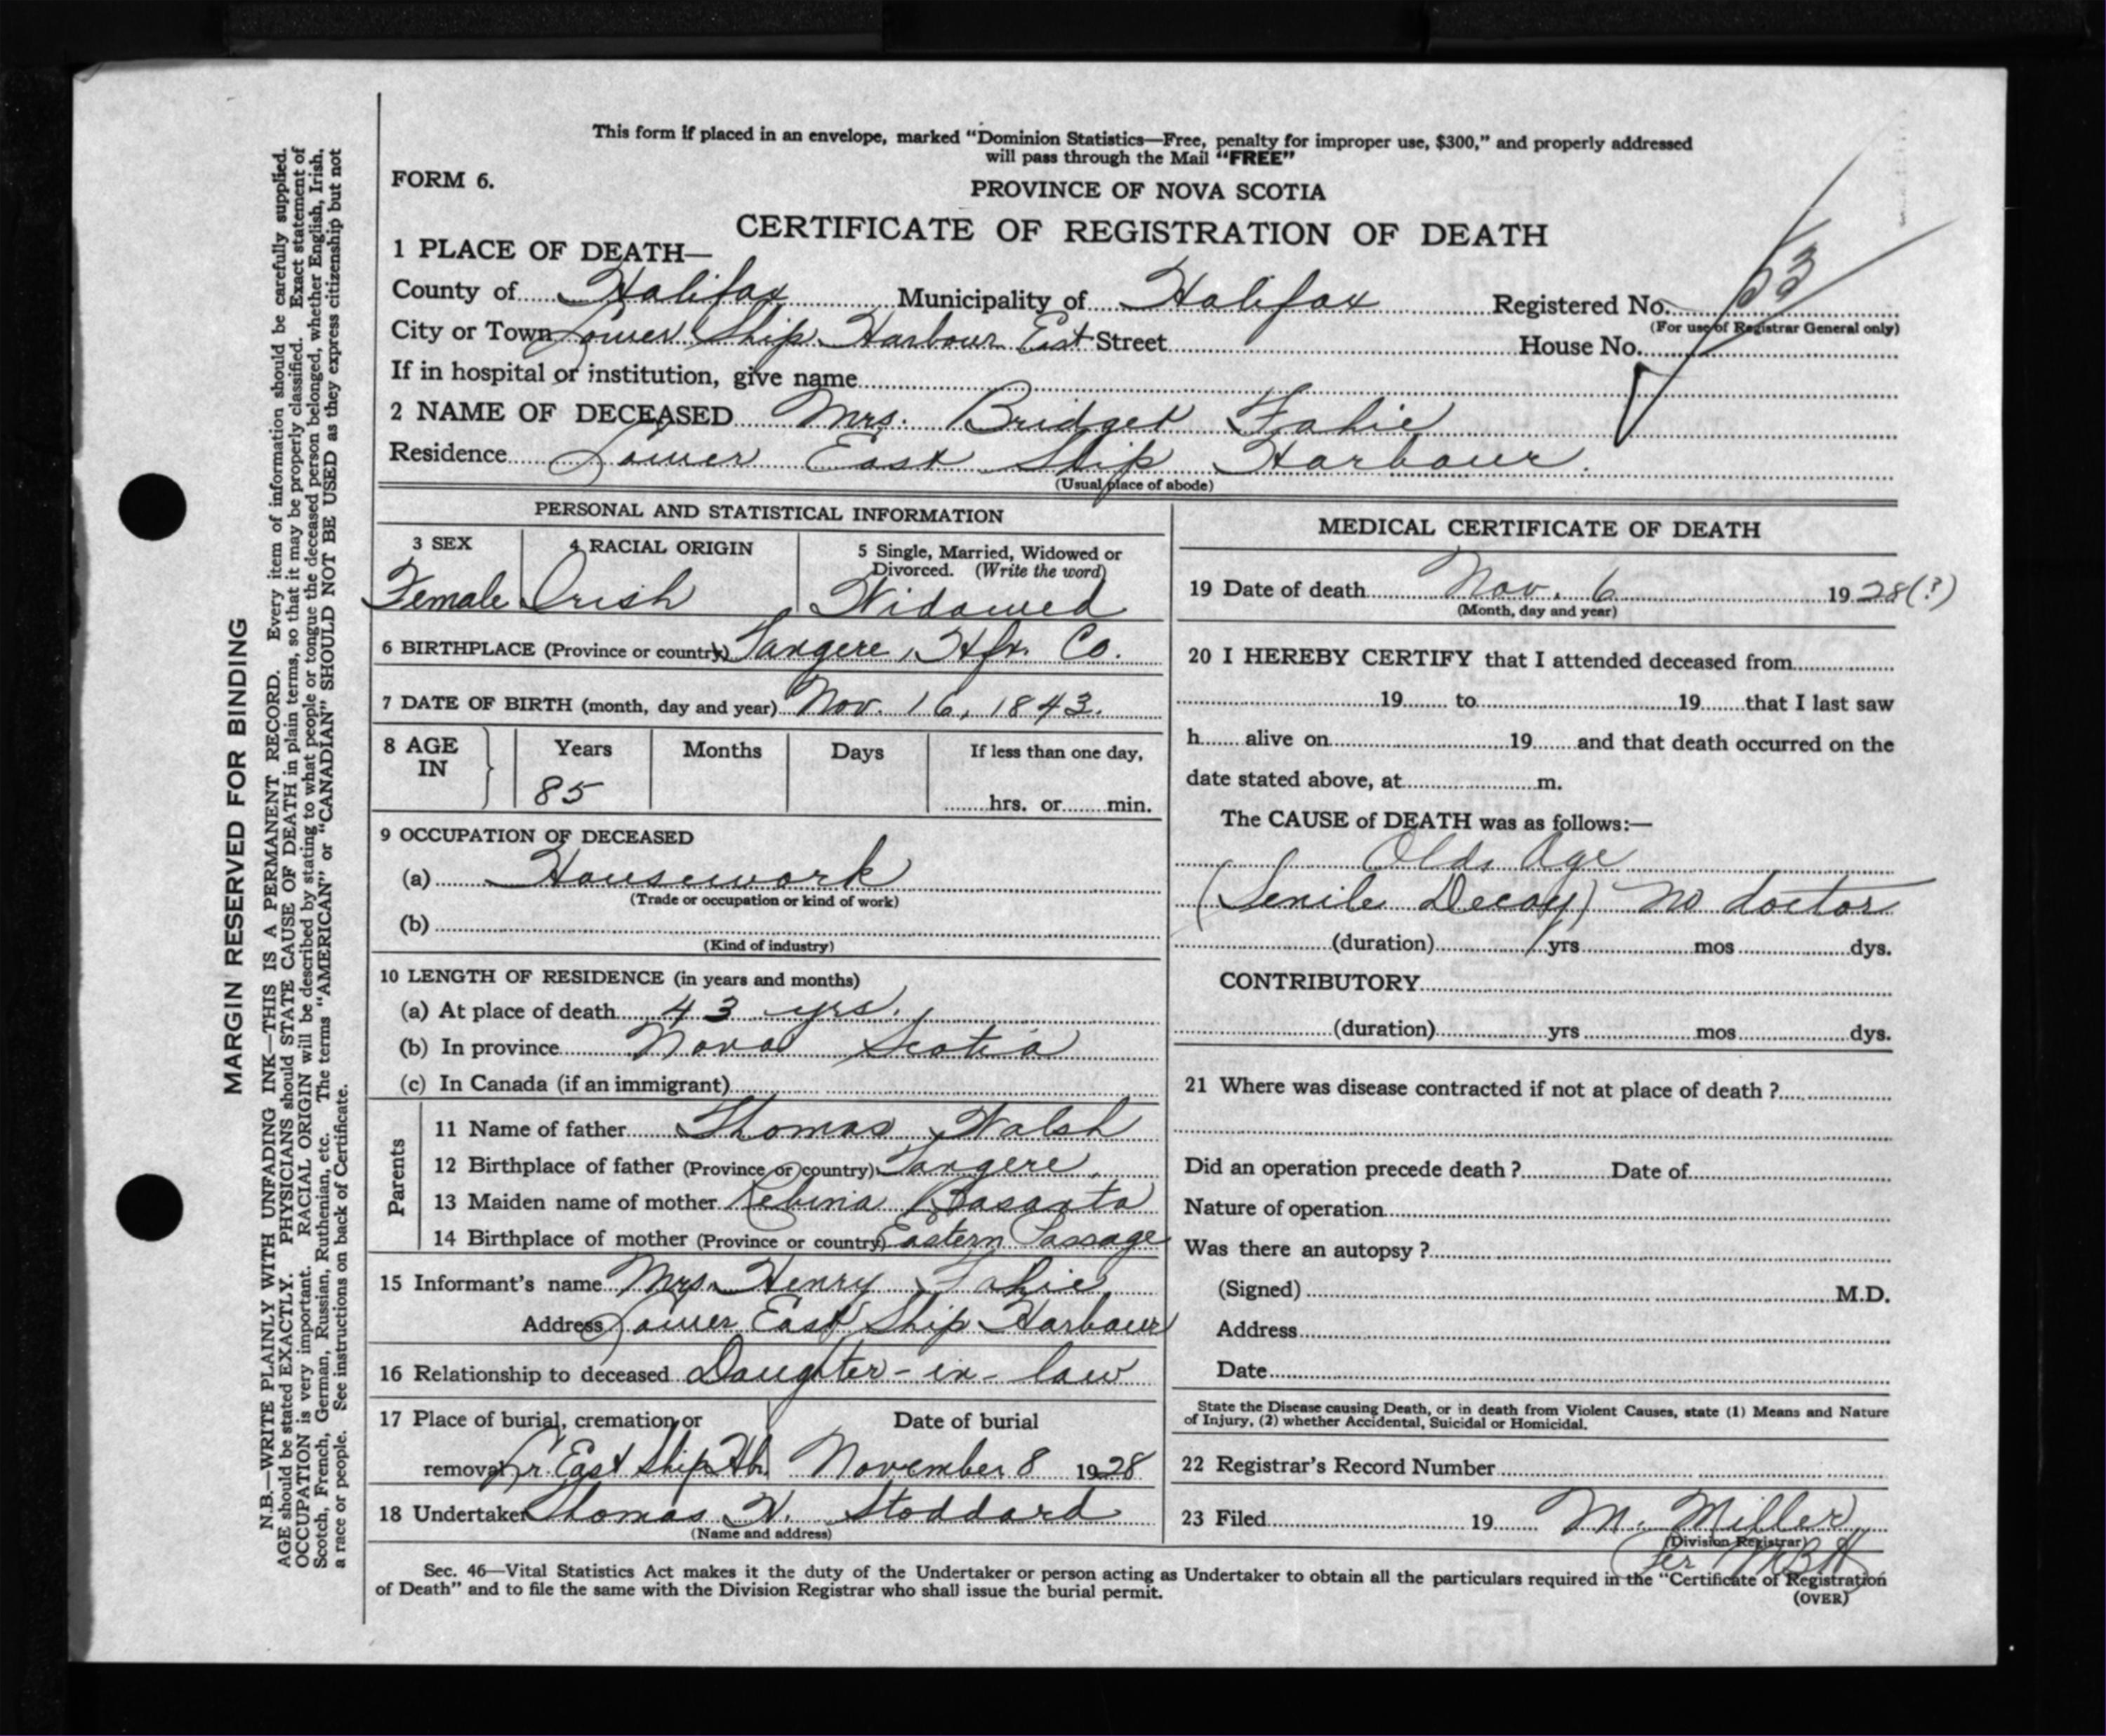 This form if placed in an envelope, marked “Dominion Statistics—Free, penalty for improper use, $300,” and properly addressed
will pass through the Mail “FREE”
FORM 6.
PROVINCE OF NOVA SCOTIA
CERTIFICATE OF REGISTRATION OF DEATH
1 PLACE OF DEATH—
County of Halifax Municipality of Halifax Registered No. 53
(For use of Registrar General only)
City or Town Lower Ship Harbour East Street House No.
If in hospital or institution, give name
2 NAME OF DECEASED Mrs. Bridget Fahie
Residence Lower East Ship Harbour.
(Usual place of abode)
PERSONAL AND STATISTICAL INFORMATION
3 SEX 4 RACIAL ORIGIN 5 Single, Married, Widowed or
Divorced. (Write the word)
Female Irish Widowed
6 BIRTHPLACE (Province or country) Tangere, Hfx. Co.
7 DATE OF BIRTH (month, day and year) Nov. 16, 1843.
8 AGE IN Years Months Days If less than one day,
85 hrs. or min.
9 OCCUPATION OF DECEASED
(a) Housework
(Trade or occupation or kind of work)
(b)
(Kind of industry)
10 LENGTH OF RESIDENCE (in years and months)
(a) At place of death 43 yrs.
(b) In province Nova Scotia
(c) In Canada (if an immigrant)
Parents
11 Name of father Thomas Walsh
12 Birthplace of father (Province or country) Tangere.
13 Maiden name of mother Rebina
14 Birthplace of mother (Province or country) Eastern Passage
15 Informant’s name Mrs. Henry Fahie
Address Lower East Ship Harbour
16 Relationship to deceased Daughter-in-law
17 Place of burial, cremation or Date of burial
removal Lr. East Ship Hb. November 8 1928
18 Undertaker Thomas W. Stoddard
(Name and address)
MEDICAL CERTIFICATE OF DEATH
19 Date of death Nov. 6 1928(?)
(Month, day and year)
20 I HEREBY CERTIFY that I attended deceased from
19 to 19 that I last saw
h alive on 19 and that death occurred on the
date stated above, at m.
The CAUSE of DEATH was as follows:—
Old Age
(Senile Decay) no doctor
(duration) yrs mos dys.
CONTRIBUTORY
(duration) yrs mos dys.
21 Where was disease contracted if not at place of death ?
Did an operation precede death ? Date of
Nature of operation
Was there an autopsy ?
(Signed) M.D.
Address
Date
State the Disease causing Death, or in death from Violent Causes, state (1) Means and Nature
of Injury, (2) whether Accidental, Suicidal or Homicidal.
22 Registrar’s Record Number
23 Filed 19 M. Miller
(Division Registrar)
Per
Sec. 46—Vital Statistics Act makes it the duty of the Undertaker or person acting as Undertaker to obtain all the particulars required in the “Certificate of Registration
of Death” and to file the same with the Division Registrar who shall issue the burial permit.
(OVER)
MARGIN RESERVED FOR BINDING
N.B.—WRITE PLAINLY WITH UNFADING INK—THIS IS A PERMANENT RECORD. Every item of information should be carefully supplied.
AGE should be stated EXACTLY. PHYSICIANS should STATE CAUSE OF DEATH in plain terms, so that it may be properly classified. Exact statement of
OCCUPATION is very important. RACIAL ORIGIN will be described by stating to what people or tongue the deceased person belonged, whether English, Irish,
Scotch, French, German, Russian, Ruthenian, etc. The terms “AMERICAN” or “CANADIAN” SHOULD NOT BE USED as they express citizenship but not
a race or people. See instructions on back of Certificate.